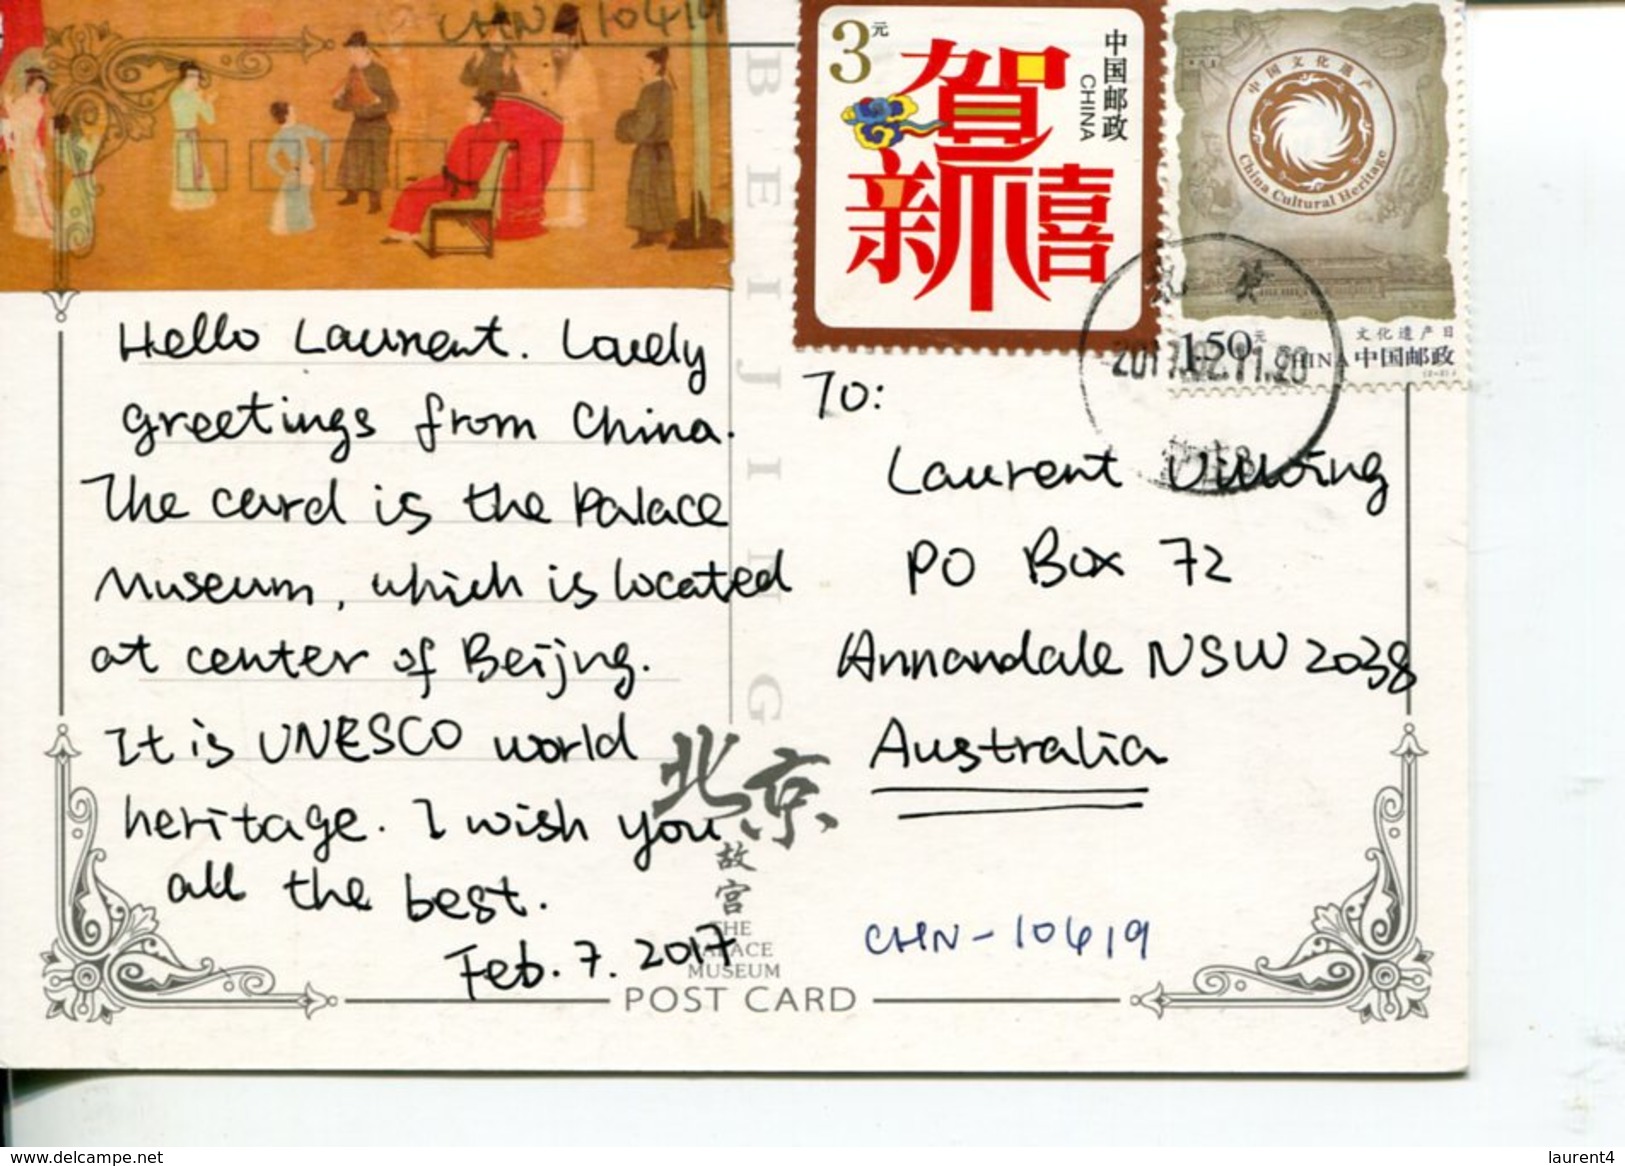 CHN-10419
3元
中国邮政
CHINA
贺
新禧
中国文化遗产
China Cultural Heritage
文化遗产日
1.50元
CHINA 中国邮政
北京
2017.02.11.20
BEIJING
Hello Laurent. Lovely
greetings from China.
The card is the Palace
Museum, which is located
at center of Beijing.
It is UNESCO world
heritage. I wish you
all the best.
Feb. 7. 2017
To:
Laurent
PO Box 72
Annandale NSW 2038
Australia
CHN-10419
北京
故宫
THE
PALACE
MUSEUM
POST CARD
www.delcampe.net
laurent4